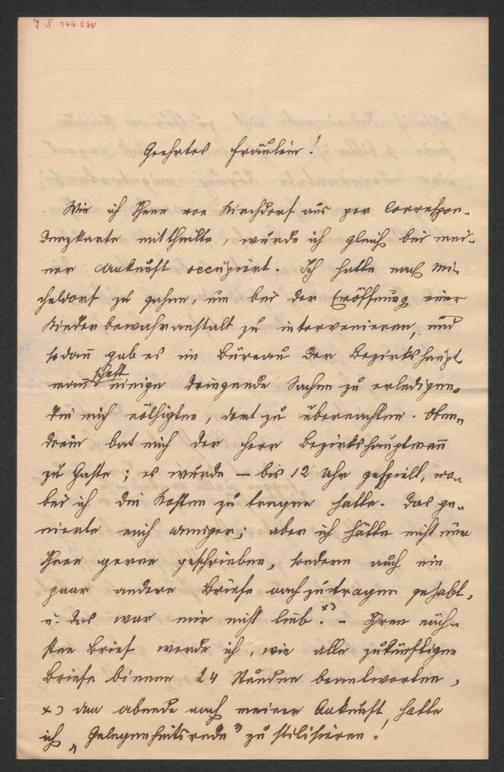 I N. 144.080
Geehrtes Fräulein!
Wie ich Ihnen von Kirchdorf aus per Correspon-
denzkarte mittheilte, wurde ich gleich bei mei-
ner Ankunft occupirt. Ich hatte nach Mi-
cheldorf zu gehen, um bei der Eröffnung einer
Kinderbewahranstalt zu intervenieren, und
sodann gab es im Bureau der Bezirkshaupt
mannschaft einige dringende Sachen zu erledigen,
die mich nöthigten, dort zu übernachten. Oben-
drein bat mich der Herr Bezirkshauptmann
zu Gaste; es wurde – bis 12 Uhr gespielt, wo-
bei ich die Kosten zu tragen hatte. Das ge-
nierte mich weniger; aber ich hätte nicht nur
Ihnen gerne geschrieben, sondern auch ein
paar andere Briefe nachzutragen gehabt,
u. das war mir nicht lieb. x) – Ihren näch-
sten Brief werde ich, wie alle zukünftigen
Briefe binnen 24 Stunden beantworten,
x) den abends nach meiner Ankunft, hatte
ich „Gelegenheitsrede" zu stilisieren.